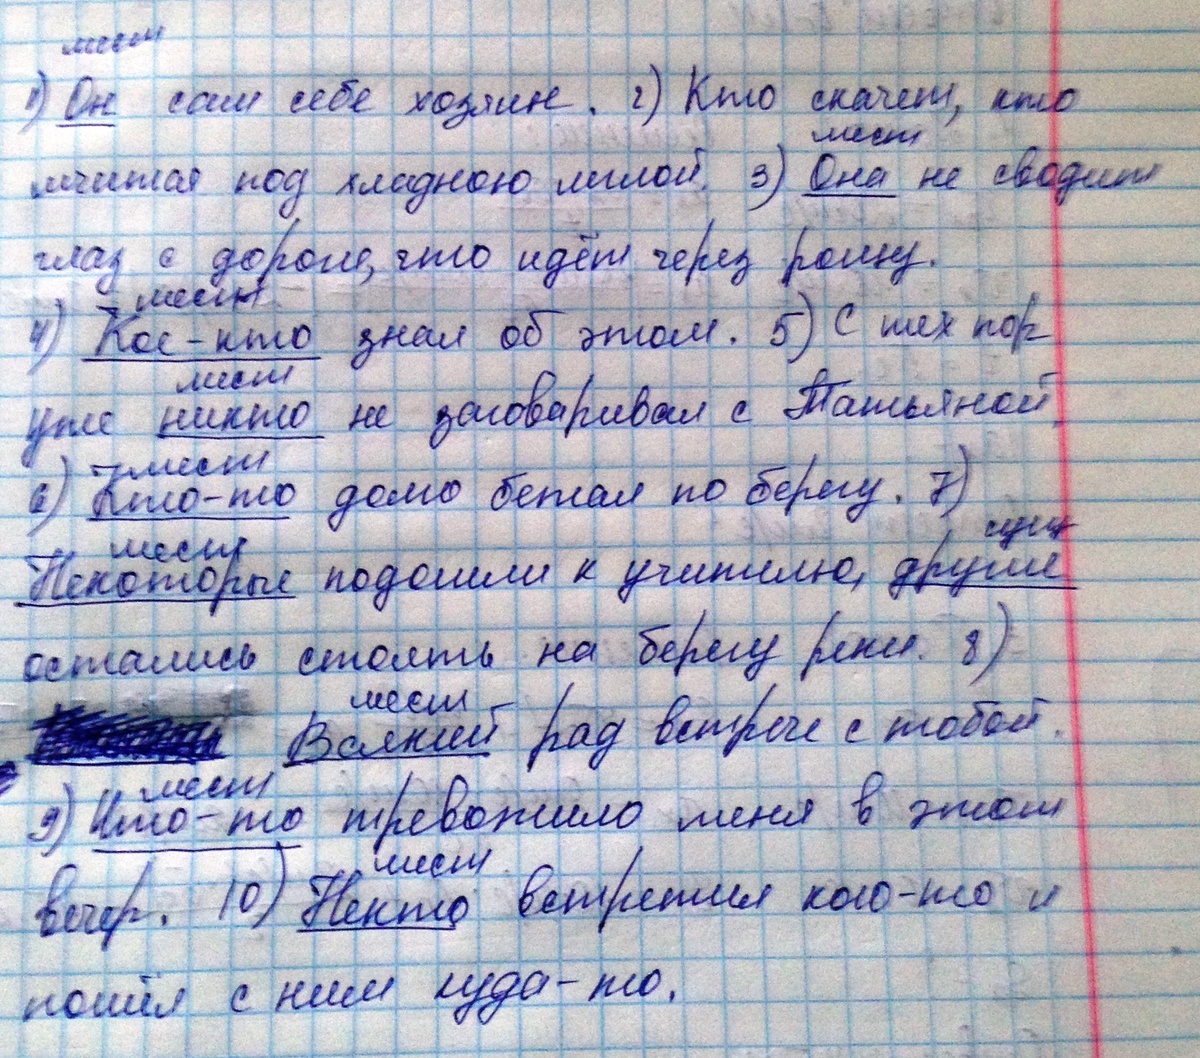 мест
1) Он сам себе хозяин. 2) Кто скачет, кто
мест
мчится под хладною мглой. 3) Она не сводит
глаз с дороги, что идёт через рощу.
мест
4) Кое-кто знал об этом. 5) С тех пор
мест
уже никто не заговаривал с Татьяной.
мест
6) Кто-то долго бежал по берегу. 7)
мест сущ
Некоторые подошли к учителю, другие
остались стоять на берегу реки. 8)
мест
Всякий рад встрече с тобой.
мест
9) Что-то тревожило меня в этот
мест
вечер. 10) Некто встретил кого-то и
пошёл с ним куда-то.